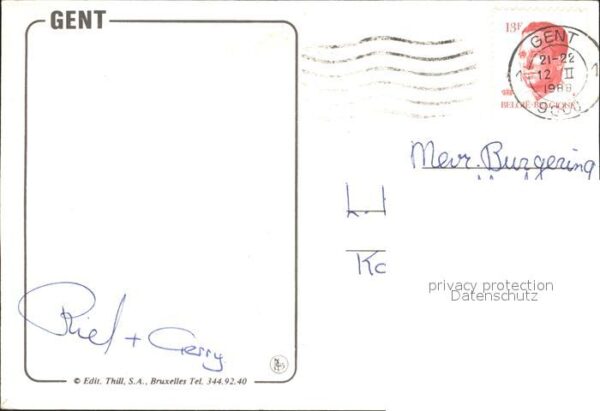 GENT
13F
GENT
21-22
12 II
1988
9000
BELGIË-BELGIQUE
Mevr. Burgering
Ko
privacy protection
Datenschutz
Riel + Gerry
© Edit. Thill, S.A., Bruxelles Tel. 344.92.40